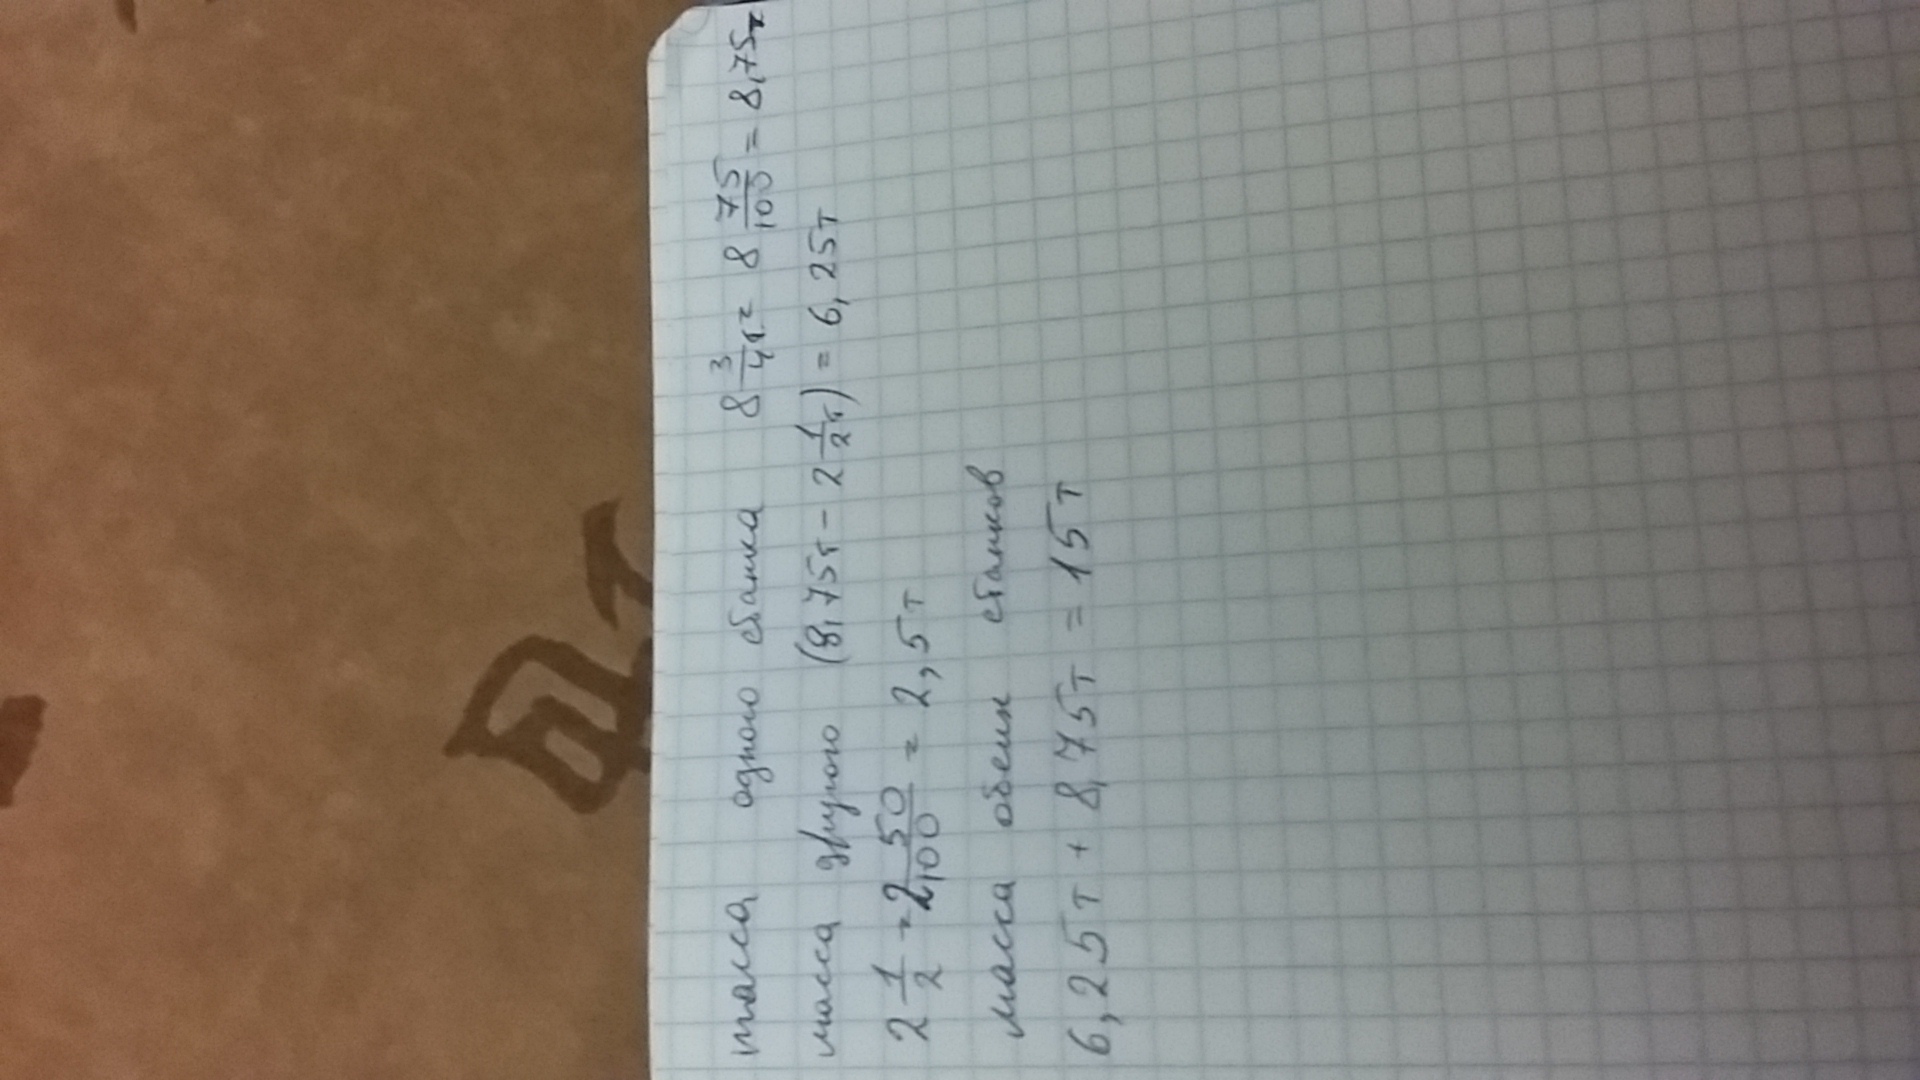 масса одного станка 8 3/4т = 8 75/100 = 8,75т
масса другого (8,75т - 2 1/2т) = 6,25т
2 1/2 = 2 50/100 = 2,5т
масса обеих станков
6,25т + 8,75т = 15т